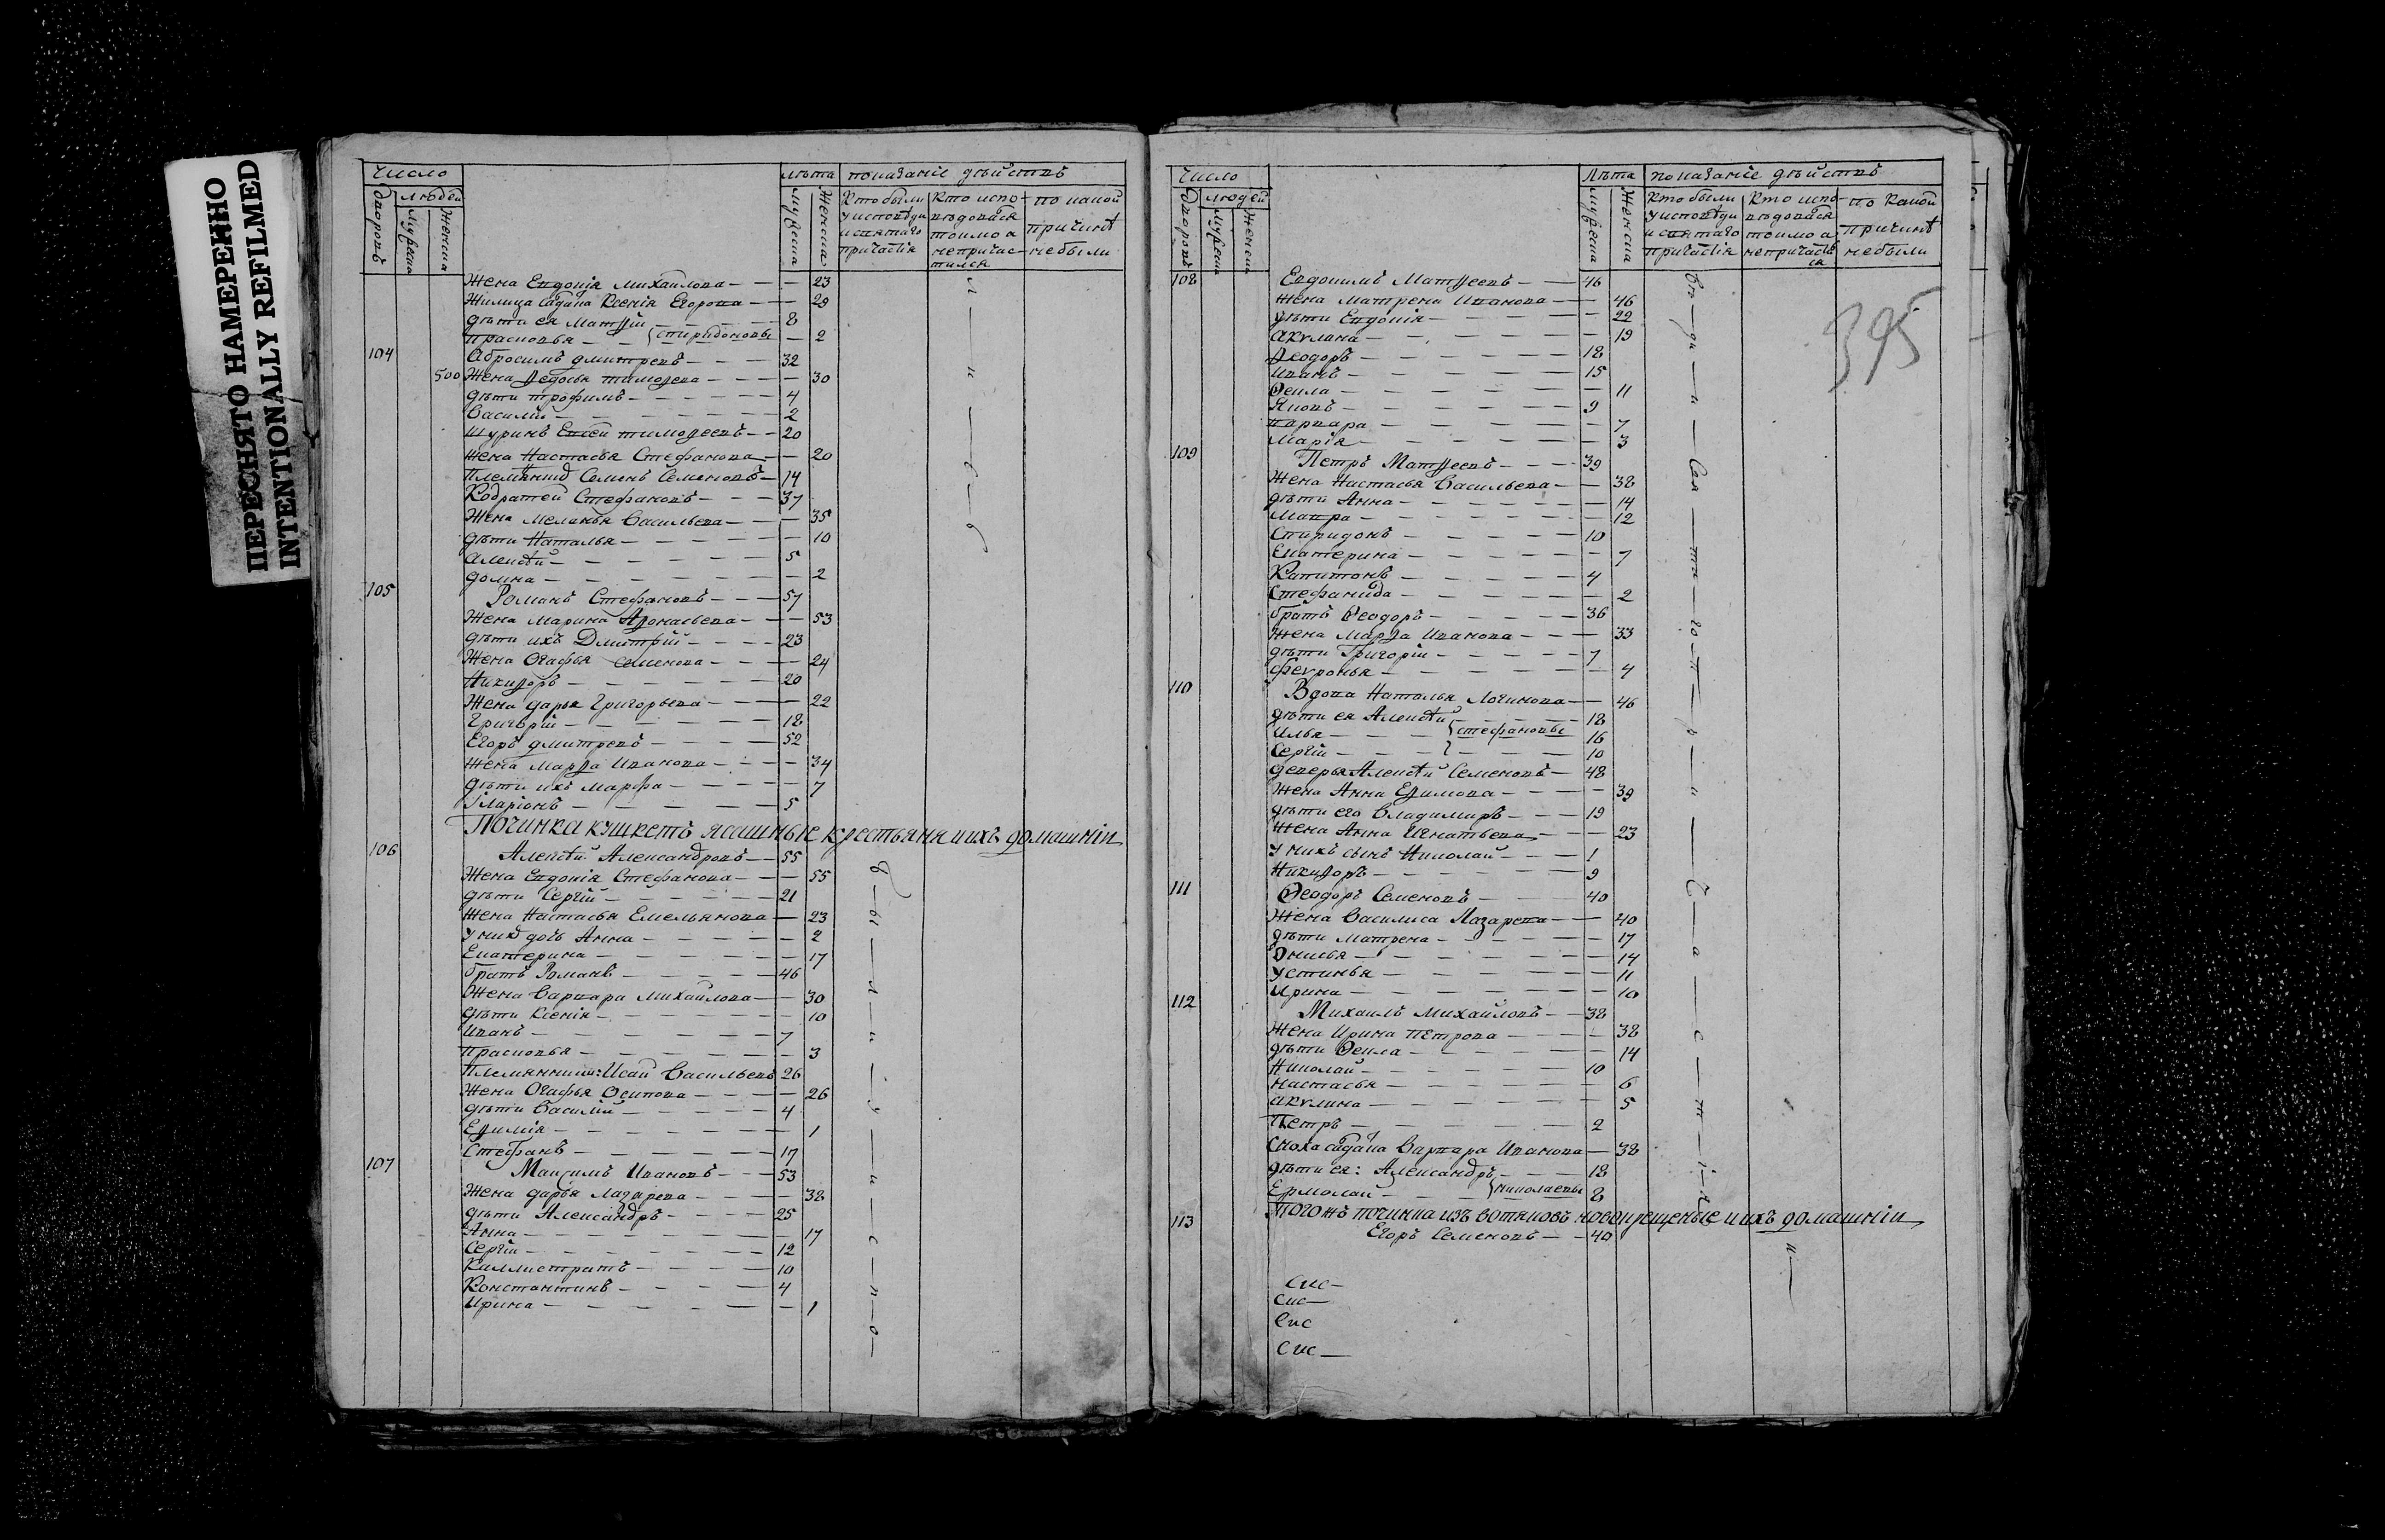 ПЕРЕСНЯТО НАМЕРЕННО
INTENTIONALLY REFILMED
Число
лѣта показанiе дѣйствъ
дворовъ
людей
мужеска
женска
мужеска
женска
Кто были у исповѣди и святаго причастiя
Кто исповѣдался токмо а не причастился
по какой причинѣ не были
Жена Евдокiя Михайлова — — — 23
Жилица салдатка Ксенiя Егорова — — 29
дѣти ея Матѳiй — — — 8
Прасковья — — спиридоновы — 2
104 Абросимъ дмитревъ — — — 32
500 Жена Ѳедосья тимоѳева — — — 30
дѣти трофимъ — — — 4
Василiй — — — 2
Шуринъ Евсей тимоѳеевъ — — 20
жена Настасья Стефанова — — 20
Племянникъ Семенъ Семеновъ — 14
Кодратей Стефановъ — — — 37
Жена Меланья Васильева — — — 35
дѣти Наталья — — — 10
Алексѣй — — — 5
домна — — — 2
105 Романъ Стефановъ — — — 57
Жена Марина Аѳонасьева — — — 53
дѣти ихъ Дмитрiй — — — 23
Жена Огафья семенова — — — 24
Никиѳоръ — — — 20
Жена дарья Григорьева — — — 22
Григорiй — — — 18
Егоръ дмитревъ — — — 52
Жена Марѳа Иванова — — — 34
дѣти ихъ марфа — — — 7
Iларiонъ — — — 5
Починка кушкетъ ясашные крестьяня и ихъ домашнiи
106 Алексѣй Александровъ — 55
Жена Евдокiя Стефанова — — — 55
дѣти Сергiй — — — 21
Жена Настасья Емельянова — 23
у нихъ дочь Анна — — — 2
Екатерина — — — 17
братъ Романъ — — — 46
Жена Варвара Михайлова — — 30
дѣти Ксенiя — — — 10
Иванъ — — — 7
Прасковья — — — 3
Племянникъ: Исай Васильевъ 26
Жена Огафья Осипова — — — 26
дѣти Василiй — — — 4
Еѳимiя — — — 1
Стефанъ — — — 17
107 Максимъ Ивановъ — — 53
Жена дарья лазарева — — — 38
дѣти Александръ — — — 25
Анна — — — 17
Сергiй — — — 12
Каллистратъ — — — 10
Константинъ — — — 4
Ирина — — — 1
Число
Лѣта показанiе дѣйствъ
дворовъ
людей
мужеска
женска
мужеска
женска
Кто были у исповѣди и святаго причастiя
Кто исповѣдался токмо а не причастился
по какой причинѣ не были
395
108 Евдокимъ Матѳеевъ — — 46
Жена Матрена Иванова — — 46
дѣти Евдокiя — — — 22
Акулина — — — 19
Ѳеодоръ — — — 18
Иванъ — — — 15
Ѳекла — — — 11
Яковъ — — — 9
Варвара — — — 7
Марiя — — — 3
109 Петръ Матѳеевъ — — — 39
Жена Настасья Васильева — — 38
дѣти Анна — — — 14
Мавра — — — 12
Спиридонъ — — — 10
Екатерина — — — 7
Капитонъ — — — 4
Стефанида — — — 2
братъ Ѳеодоръ — — — 36
Жена Марѳа Иванова — — — 33
дѣти Григорiй — — — 7
Февронья — — — 4
110 Вдова Наталья Логинова — 46
дѣти ея Алексѣй — — — 18
Илья — — — стефановы 16
Сергiй — — — 10
деверья Алексѣй Семеновъ — 48
Жена Анна Еѳимова — — — 39
дѣти его Владимиръ — — — 19
Жена Анна Игнатьева — — — 23
у нихъ сынъ Николай — — — 1
Никиѳоръ — — — 9
111 Ѳеодоръ Семеновъ — — — 40
Жена Василиса Лазарева — — 40
дѣти Матрена — — — 17
14
Устинья — — — 11
Ирина — — — 10
112 Михаилъ Михайловъ — — 38
Жена Ирина Петрова — — — 38
дѣти Ѳекла — — — 14
Николай — — — 10
Настасья — — — 6
Акулина — — — 5
Петръ — — — 2
Сноха салдатка Варвара Иванова — 38
дѣти ея: Александръ — — — 18
Ермолай — — — николаевы 8
113 Тогожъ починка изъ вотяковъ новокрещеные и ихъ домашнiи
Егоръ Семеновъ — — 40
Сис—
Сис—
Сис
Сис—